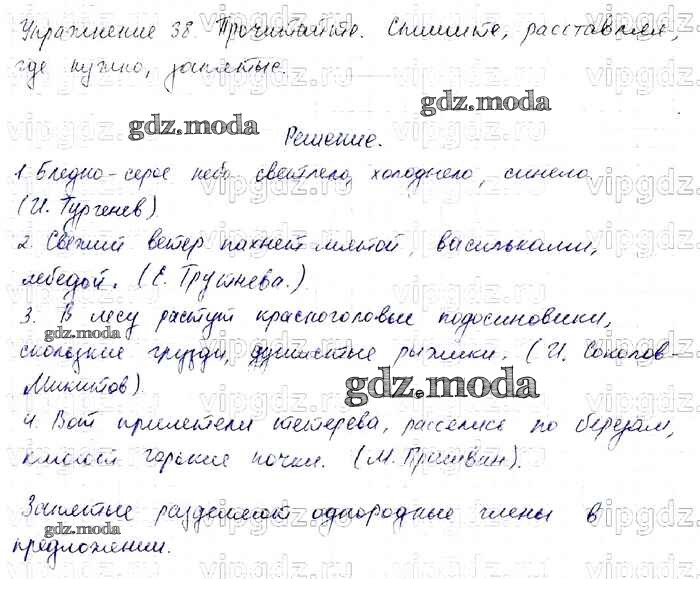 Упражнение 38. Прочитайте. Спишите, расставляя,
где нужно, запятые.
gdz.moda
Решение.
1. Бледно-серое небо светлело, холоднело, синело.
(И. Тургенев)
2. Свежий ветер пахнет мятой, васильками,
лебедой. (Е. Трутнева.)
3. В лесу растут красноголовые подосиновики,
gdz.moda
скользкие грузди, душистые рыжики. (И. Соколов-
Микитов).
gdz.moda
4. Вот прилетели тетерева, расселись по березам,
клюют горькие почки. (М. Пришвин).
Запятые разделяют однородные члены в
gdz.moda
предложении.